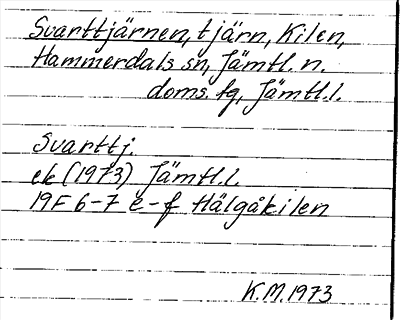 Svarttjärnen, tjärn, Kilen,
Hammerdals sn, Jämtl. n.
doms. fg, Jämtl.l.
Svarttj.
ek (1973) Jämtl.l.
19F 6-7 e-f Hälgåkilen
K.M. 1973